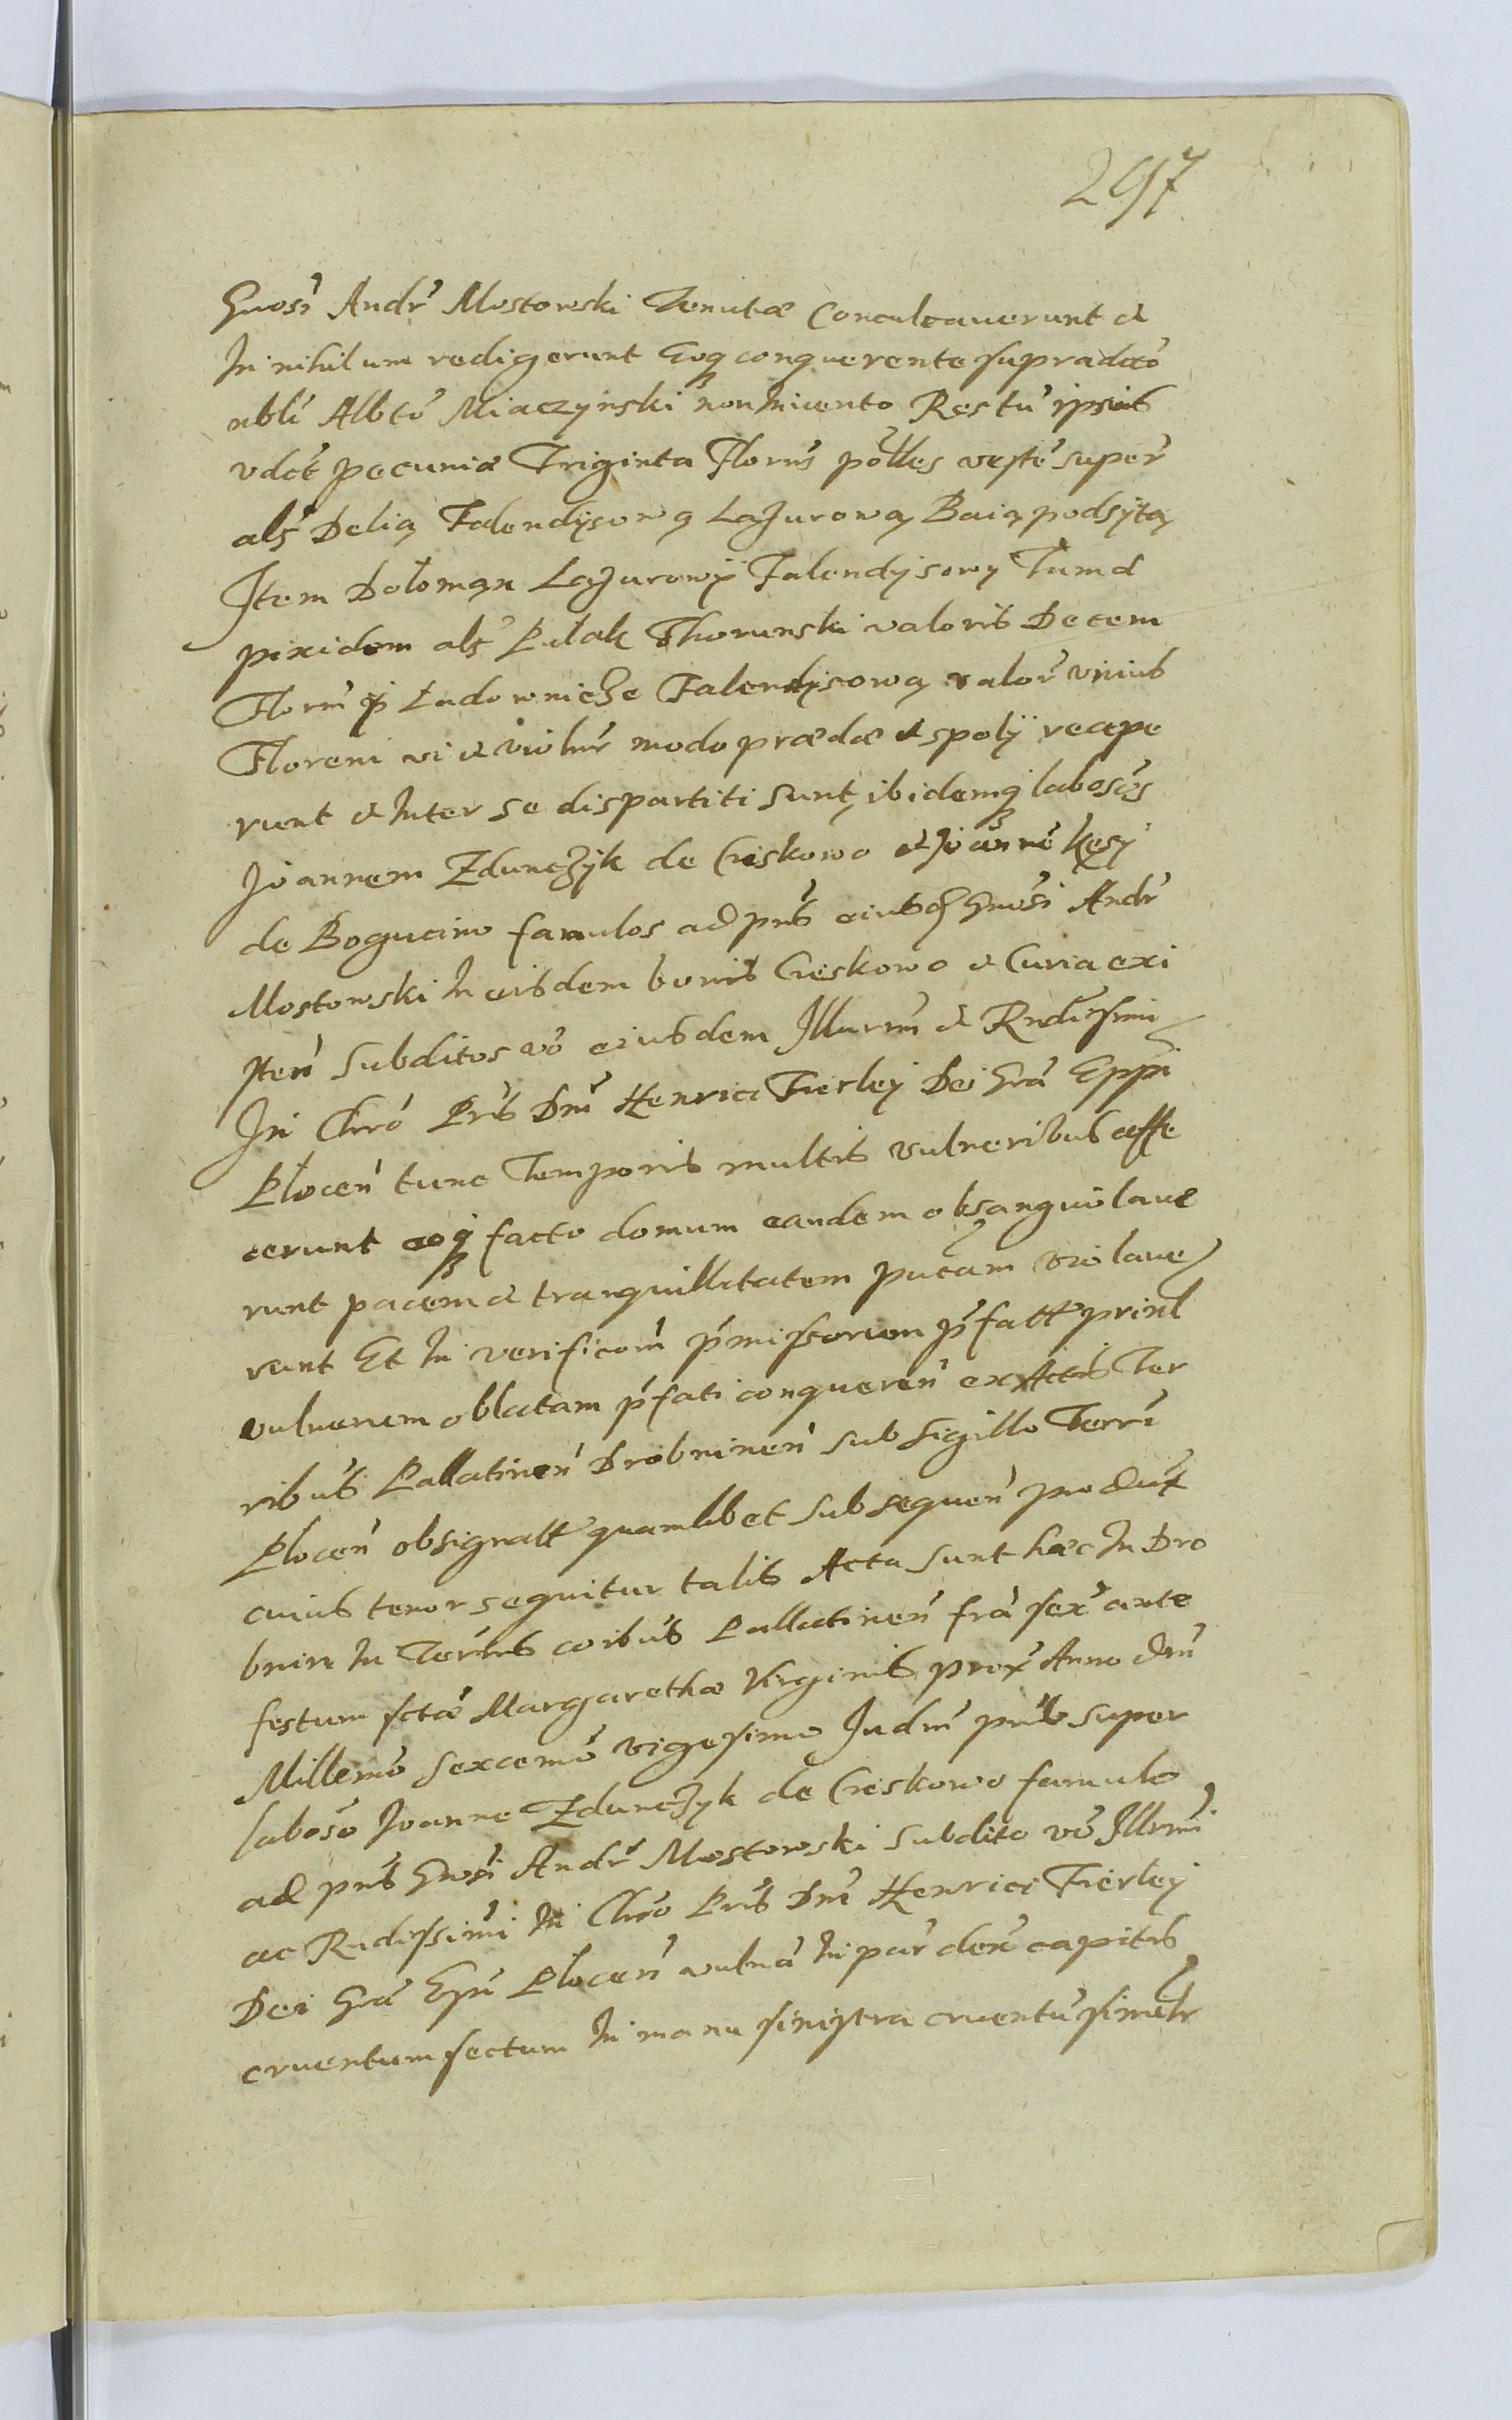 297
Gnosi Andr Mostowski Tenutæ Conculcauerunt et
In nihilum redigerunt Eoq conquerente supradcto
nbli Albto Miaczyński Res tu ipsius
vdct pecuniæ Triginta Floren polles veste super
als Delią Falendysową Lazurową Baią podsytą
Item Doloman Lazurowÿ Falendysowy Tum et
pixidem als Pułak Thorunski valoris Decem
Floren Ładownicze Falendysową valor vnius
Floreni vi et violenr modo prædæ et spolÿ recepe
runt et Inter se dispartiti sunt, ibidemq labosos
Joannem Zdunczyk de Cieskowo et Joanne Kęsy
de Bogucino famulos ad pns eiusd Gnosi Andr
Mostowski In eisdem bonis Cieskowo et Curia exi
sten Subditos vo eiusdem Illurmi et Rndissimi
In Chro Pris Dni Henrici Fierley Dei Gra Eppi
Plocen tunc Temporis multis vulneribus affe
cerunt eoq facto domum eandem obsanguilaue
runt pacem et tranquillitatem pucam violaue
runt Et In verificaom pmissorum pfatt prinl
vulnerum oblatam pfati conqueren ex Actis Ter
ribus Pallatinen Drobninen sub sigillo Terri
Plocen obsignatt quamlibet subsequen produx
cuius tenor sequitur talis Acta sunt hæc In Dro
bnin In Termis coibus Pallatinen fra sex ante
festum sctæ Margarethæ Virginis prox Anno dni
Millemo Sexcemo vigesimo Judm pnb super
laboso Joanne Zdunczyk de Cieskowo famulo
ad pns Gnosi Andr Mostowski subdito vo Illurmi
ac Rndissimi In Chro Pris Dni Henrici Fierley
Dei Gra Epi Plocen vulna In par dex capitis
cruentum sectum In manu sinistra cruentu similr